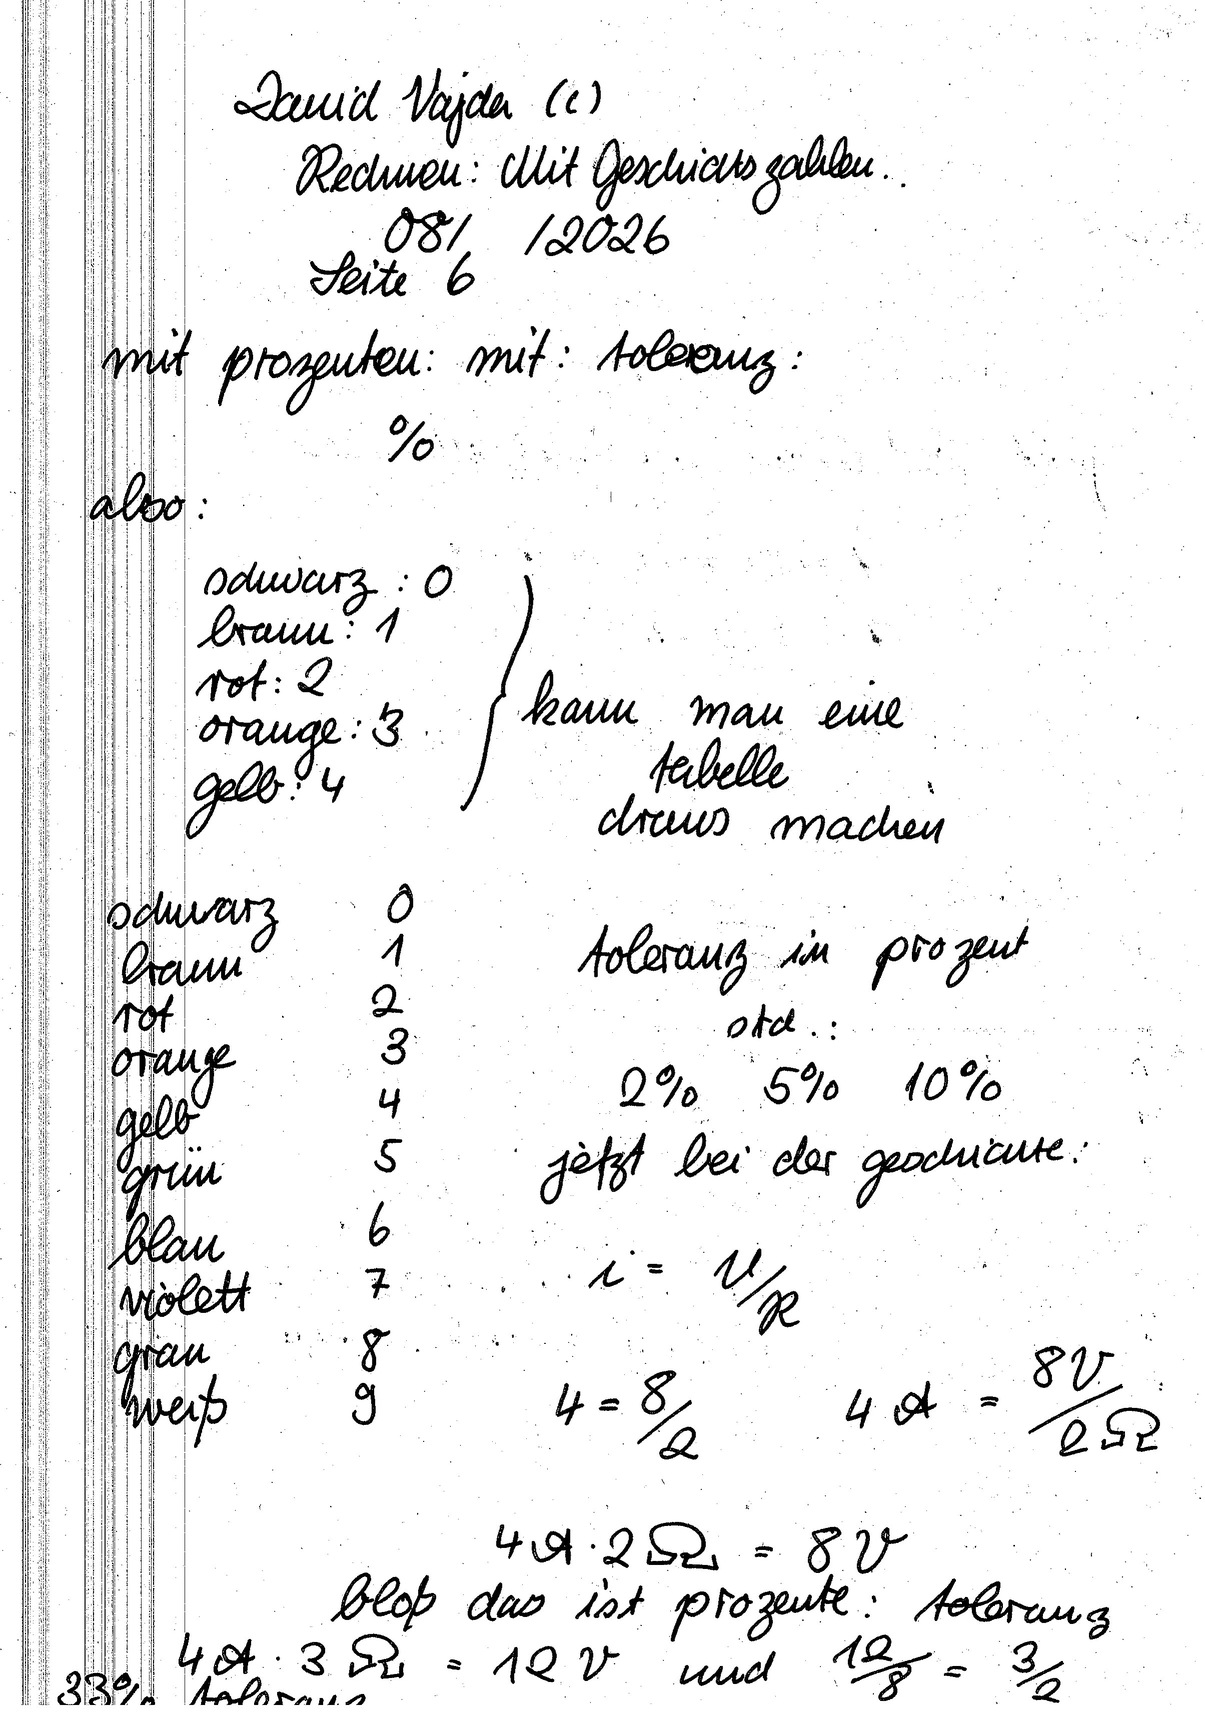 David Vajda (c)
Rechnen: Mit Geschichtszahlen.
08/ /2026
Seite 6
mit prozenten: mit: toleranz:
%
also:
schwarz : 0
braun: 1
rot: 2
orange: 3
gelb: 4
kann man eine
tabelle
draus machen
schwarz 0
braun 1
rot 2
orange 3
gelb 4
grün 5
blau 6
violett 7
grau 8
weiß 9
toleranz in prozent
std.:
2% 5% 10%
jetzt bei der geschichte:
i = U/R
4 = 8/2 4 A = 8V/2Ω
4A · 2Ω = 8V
bloß das ist prozente: toleranz
4A · 3Ω = 12V und 12/8 = 3/2
33% toleranz